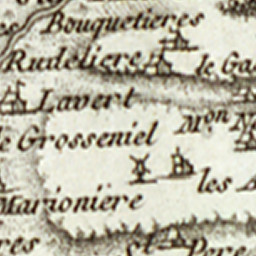 Bouquetieres
Rudeliere
le Ga
Lavert
le Grosseniel
Mon N
les
Marioniére
res
St Pere